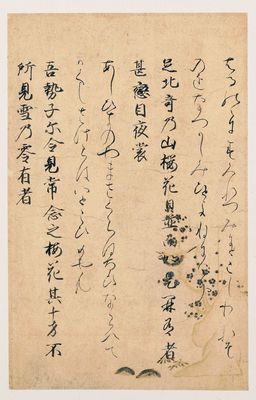 はるのにすみれつみにとこしわれそ
のをなつかしみひとよねにける
足比奇乃山櫻花日並而如是開有者
甚戀目夜裳
あしひきのやまさくらはなひならへて
かくしさけらはいとこひめやも
吾勢子尓令見常念之梅花其十方不
所見雪乃零有者